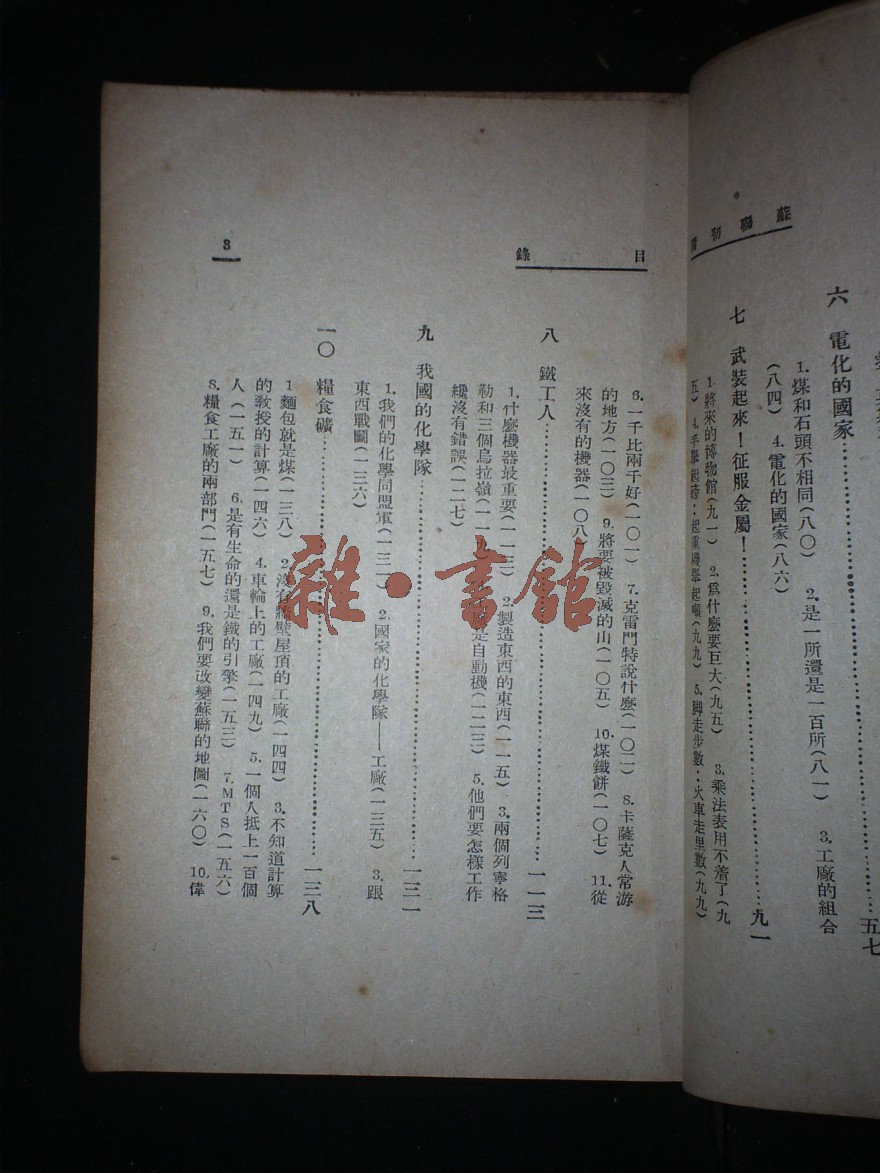 蘇聯初階
六 電化的國家……五七
1.煤和石頭不相同(八〇) 2.是一所還是一百所(八一) 3.工廠的組合
(八四) 4.電化的國家(八六)
七 武裝起來!征服金屬!……九一
1.將來的博物館(九一) 2.爲什麼要巨大(九五) 3.乘法表用不着了(九
五) 4.手舉起磅:起重機舉起噸(九九) 5.脚走步數:火車走里數(九九)
目錄
3
6.一千比兩千好(一〇一) 7.克雷門特說什麼(一〇二) 8.卡薩克人常游
的地方(一〇三) 9.將要被毀滅的山(一〇五) 10.煤鐵餅(一〇七) 11.從
來沒有的機器(一〇八)
八 鐵工人……一一三
1.什麼機器最重要(一一三) 2.製造東西的東西(一一五) 3.兩個列寧格
勒和三個烏拉嶺(一一 是自動機(一二三) 5.他們要怎樣工作
纔沒有錯誤(一二七)
九 我國的化學隊……一三一
1.我們的化學同盟軍(一三一) 2.國家的化學隊——工廠(一三五) 3.跟
東西戰鬭(一三六)
一〇 糧食礦……一三八
1麵包就是煤(一三八) 2.沒有牆壁屋頂的工廠(一四四) 3.不知道計算
的敎授的計算(一四六) 4.車輪上的工廠(一四九) 5.一個人抵上一百個
人(一五一) 6.是有生命的還是鐵的引擎(一五三) 7.MTS(一五六)
8.糧食工廠的兩部門(一五七) 9.我們要改變蘇聯的地圖(一六〇) 10.偉
雜·書館